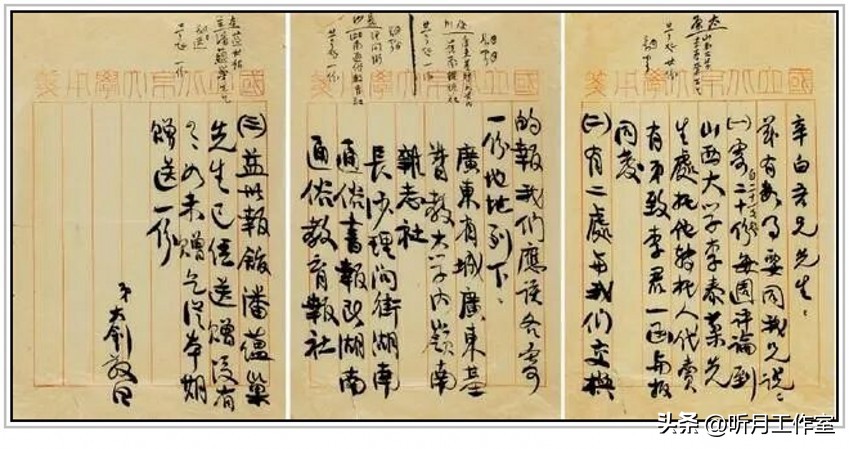 國立北京大學用箋
辛白吾兄先生：
我有數事要同我兄說：
(一)寄二十份每週評論到
山西大學李泰棻先
生處托他轉托人代賣
有弟致李君一函与報
同發
(二)有二處与我們交換
國立北京大學用箋
的報我們應該各寄
一份地址列下：
廣東省城廣東基
督教大學内嶺南
雜志社
長沙理问街湖南
通俗書報社湖南
通俗教育報社
國立北京大學用箋
(三)益世報館潘蘊巢
先生已經送贈没有
如未贈乞從本期
贈送一份
弟大釗敬白
头条 @听月工作室